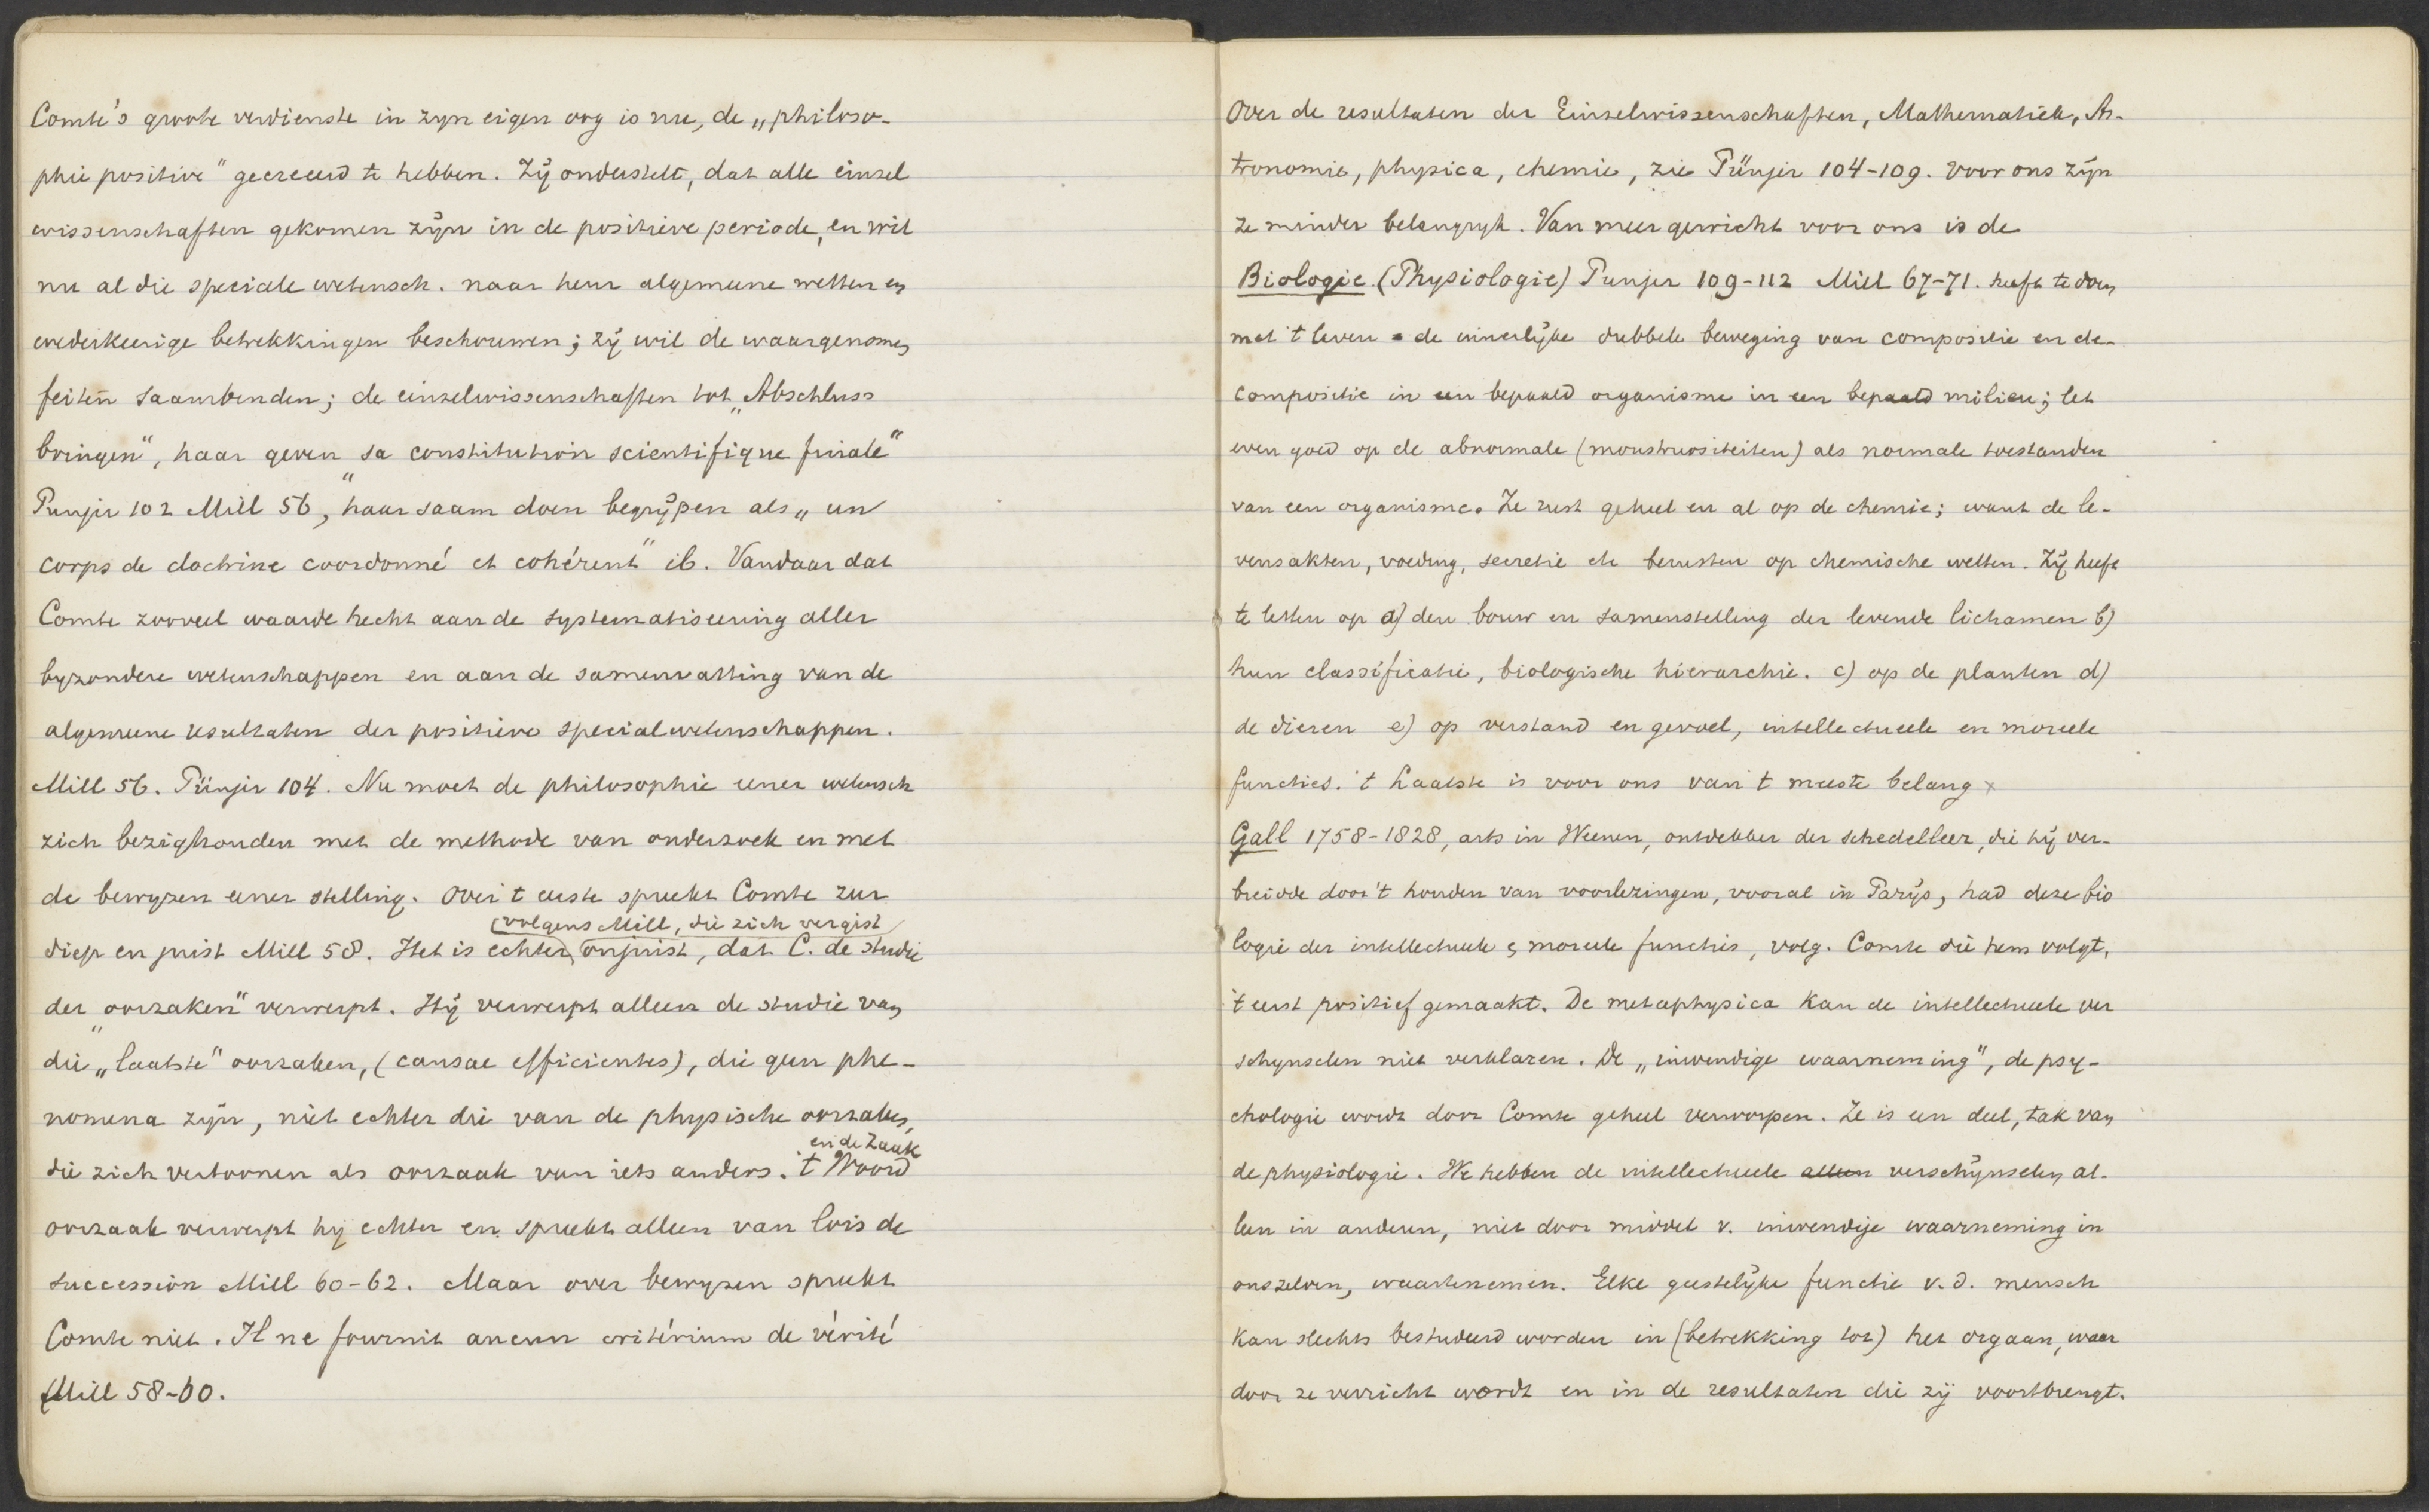 Comte's groote verdienste in zyn eigen oog is nu, de „philoso-
phie positive" gecreeerd te hebben. Zij onderstelt, dat alle einsel
wissenschaften gekomen zijn in de positieve periode, en wil
nu al die speciale wetensch. naar hun algemeene wetten en
wederkeerige betrekkingen beschouwen; zij wil de waargenomen
feiten saambinden; de einzelwissenschaften tot „Abschluss
bringen", haar geven „sa constitution scientifique finale"
Punjer 102 Mill 56, haar saam doen begrijpen als „un
corps de doctrine coordonné et cohérent" ib. Vandaar dat
Comte zooveel waarde hecht aan de systematiseering aller
byzondere wetenschappen en aan de samenvatting van de
algemeene resultaten der positieve specialwetenschappen.
Mill 56. Pünjer 104. Nu moet de philosophie eener wetensch
zich bezighouden met de methode van onderzoek en met
de bewyzen eener stelling. Over 't eerste spreekt Comte zeer
(volgens Mill, die zich vergist)
diep en juist Mill 58. Het is echter onjuist, dat C. de studie
der „oorzaken" verwerpt. Hij verwerpt alleen de studie van
die „laatste" oorzaken, (causae efficientes), die geen phe-
nomena zijn, niet echter die van de physische oorzaken,
en de Zaak
die zich vertoonen als oorzaak van iets anders. 't Woord
oorzaak verwerpt hij echter en spreekt alleen van lois de
succession Mill 60-62. Maar over bewyzen spreekt
Comte niet. Il ne fournit aucun critérium de vérité
Mill 58-60.
Over de resultaten der Einselwissenschaften, Mathematiek, As-
tronomie, physica, chemie, zie Pünjer 104-109. Voor ons zijn
ze minder belangryk. Van meer gewicht voor ons is de
Biologie (Physiologie) Punjer 109-112 Mill 67-71. heeft te doen
met 't leven = de innerlijke dubbele beweging van compositie en de-
compositie in een bepaald organisme in een bepaald milieu; let
even goed op de abnormale (monstruositeiten) als normale toestanden
van een organisme. Ze rust geheel en al op de chemie; want de le-
vensakten, voeding, secretie etc berusten op chemische wetten. Zij heeft
te letten op a) den bouw en samenstelling der levende lichamen b)
hun classificatie, biologische hiërarchie. c) op de planten d)
de dieren e) op verstand en gevoel, intellectueele en moreele
functies. 't Laatste is voor ons van 't meeste belang x
Gall 1758-1828, arts in Weenen, ontdekker der schedelleer, die hij ver-
breidde door 't houden van voorlezingen, vooral in Parijs, had deze bio
logie der intellectueele & moreele functies, volg. Comte die hem volgt,
't eerst positief gemaakt. De metaphysica kan de intellectueele ver
schynselen niet verklaren. De „inwendige waarneming", de psy-
chologie wordt door Comte geheel verworpen. Ze is een deel, tak van
de physiologie. We hebben de intellectueele alleen verschijnselen al-
leen in anderen, niet door middel v. inwendige waarneming in
onszelven, waartenemen. Elke geestelijke functie v.d. mensch
kan slechts bestudeerd worden in (betrekking tot) het orgaan, waar
door ze verricht wordt en in de resultaten die zij voortbrengt.